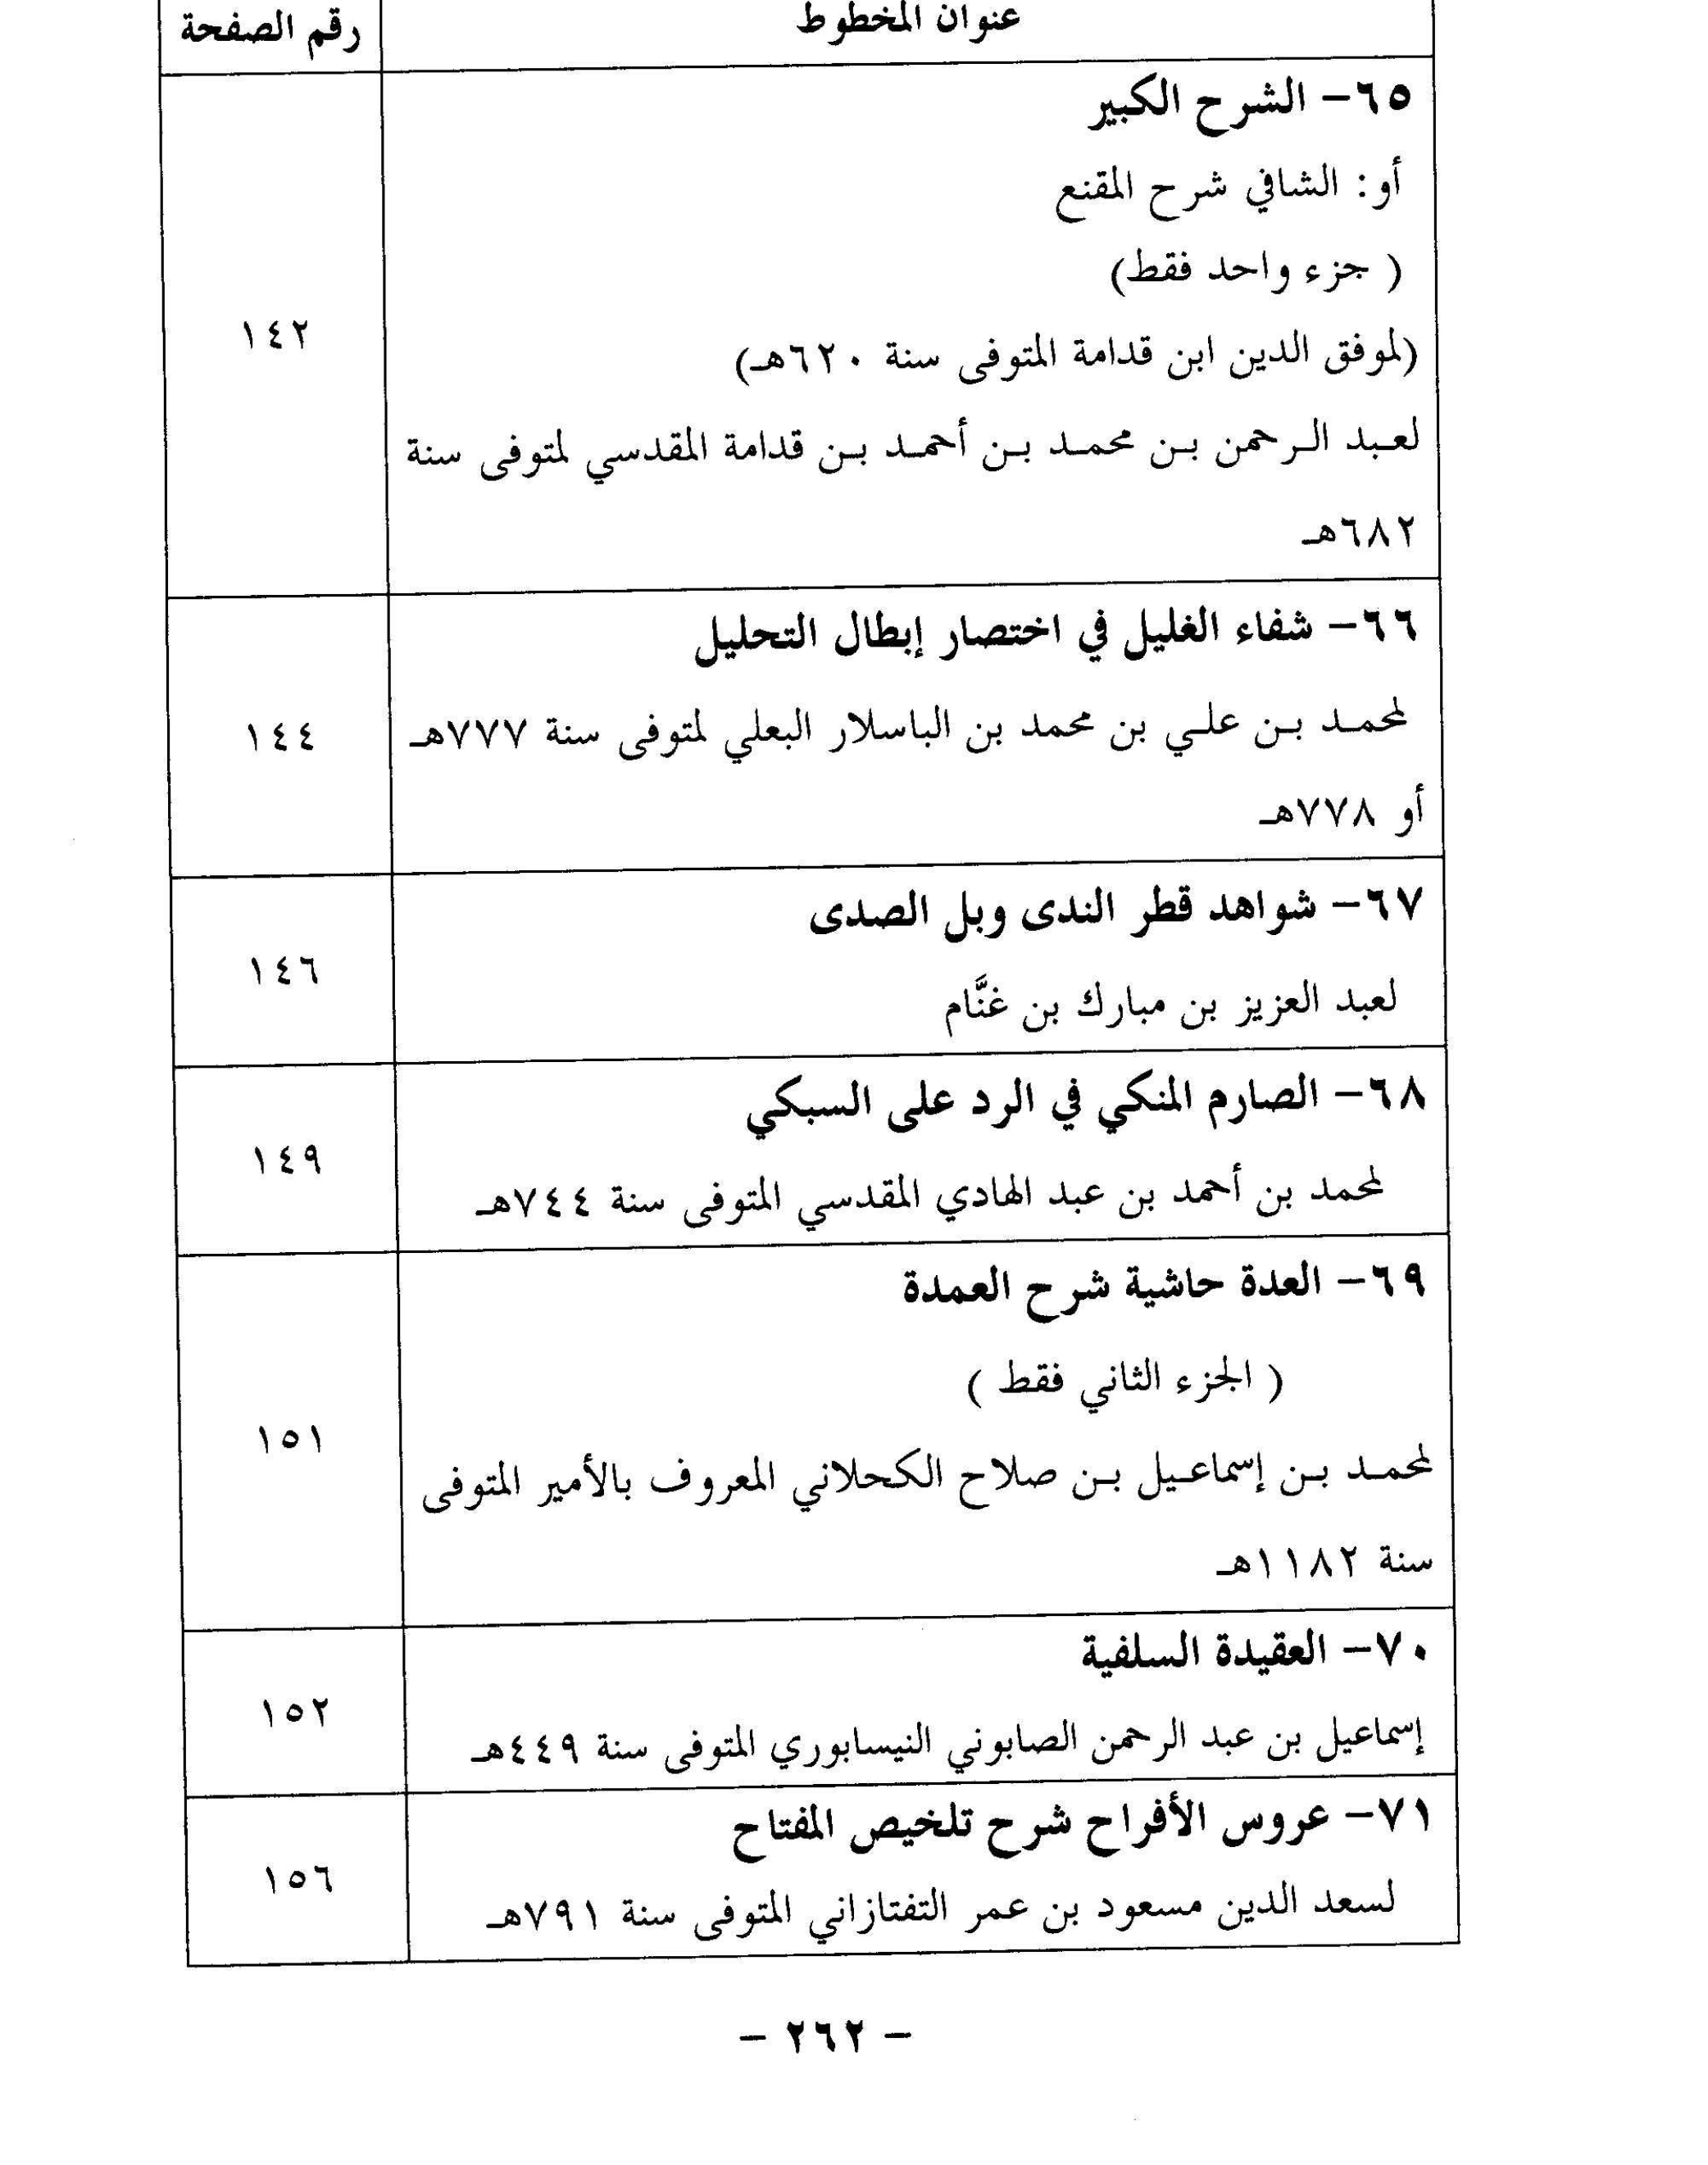 عنوان المخطوط
رقم الصفحة
٦٥- الشرح الكبير
أو: الشافي شرح المقنع
( جزء واحد فقط)
(لموفق الدين ابن قدامة المتوفى سنة ٦٢٠هـ)
لعبد الرحمن بن محمد بن أحمد بن قدامة المقدسي لمتوفى سنة
٦٨٢هـ
١٤٢
٦٦- شفاء الغليل في اختصار إبطال التحليل
لمحمد بن علي بن محمد بن الباسلار البعلي لمتوفى سنة ٧٧٧هـ
أو ٧٧٨هـ
١٤٤
٦٧- شواهد قطر الندى وبل الصدى
لعبد العزيز بن مبارك بن غنَّام
١٤٦
٦٨- الصارم المنكي في الرد على السبكي
لمحمد بن أحمد بن عبد الهادي المقدسي المتوفى سنة ٧٤٤هـ
١٤٩
٦٩- العدة حاشية شرح العمدة
( الجزء الثاني فقط )
لمحمد بن إسماعيل بن صلاح الكحلاني المعروف بالأمير المتوفى
سنة ١١٨٢هـ
١٥١
٧٠- العقيدة السلفية
إسماعيل بن عبد الرحمن الصابوني النيسابوري المتوفى سنة ٤٤٩هـ
١٥٢
٧١- عروس الأفراح شرح تلخيص المفتاح
لسعد الدين مسعود بن عمر التفتازاني المتوفى سنة ٧٩١هـ
١٥٦
- ٢٦٢ -